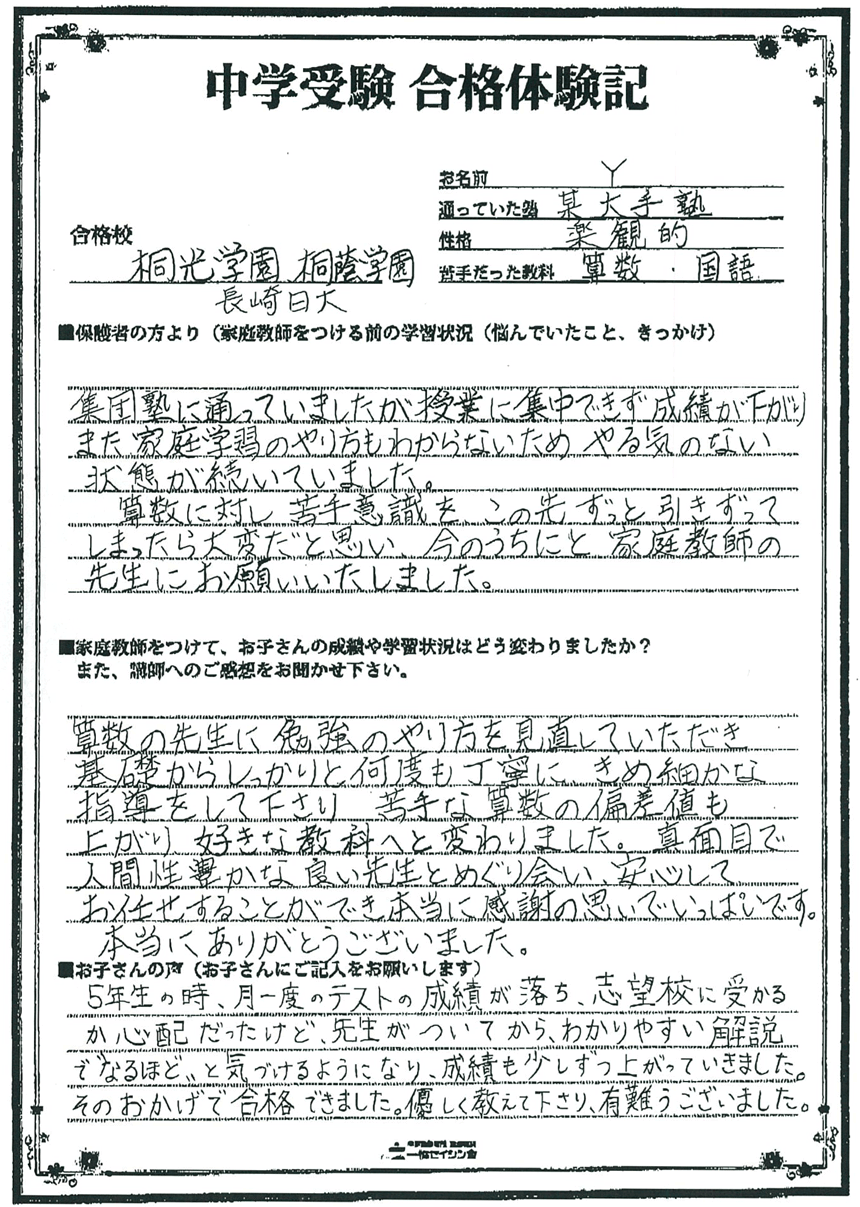 中学受験 合格体験記
お名前 Y
通っていた塾 某大手塾
性格 楽観的
苦手だった教科 算数・国語
合格校
桐光学園 桐蔭学園
長崎日大
■保護者の方より(家庭教師をつける前の学習状況(悩んでいたこと、きっかけ)
集団塾に通っていましたが授業に集中できず成績が下がり
また家庭学習のやり方もわからないため やる気のない
状態が続いていました。
算数に対し苦手意識を、この先ずっと引きずって
しまったら大変だと思い、今のうちにと家庭教師の
先生にお願いいたしました。
■家庭教師をつけて、お子さんの成績や学習状況はどう変わりましたか?
また、講師へのご感想をお聞かせ下さい。
算数の先生に勉強のやり方を見直していただき
基礎からしっかりと何度も丁寧に、きめ細かな
指導をして下さり 苦手な算数の偏差値も
上がり 好きな教科へと変わりました。真面目で
人間性豊かな良い先生とめぐり会い、安心して
お任せすることができ本当に感謝の思いでいっぱいです。
本当にありがとうございました。
■お子さんの声(お子さんにご記入をお願いします)
5年生の時、月一度のテストの成績が落ち、志望校に受かる
か心配だったけど、先生がついてから、わかりやすい解説
で"なるほど"と気づけるようになり、成績も少しずつ上がっていきました。
そのおかげで合格できました。優しく教えて下さり、有難うございました。
一橋セイシン会